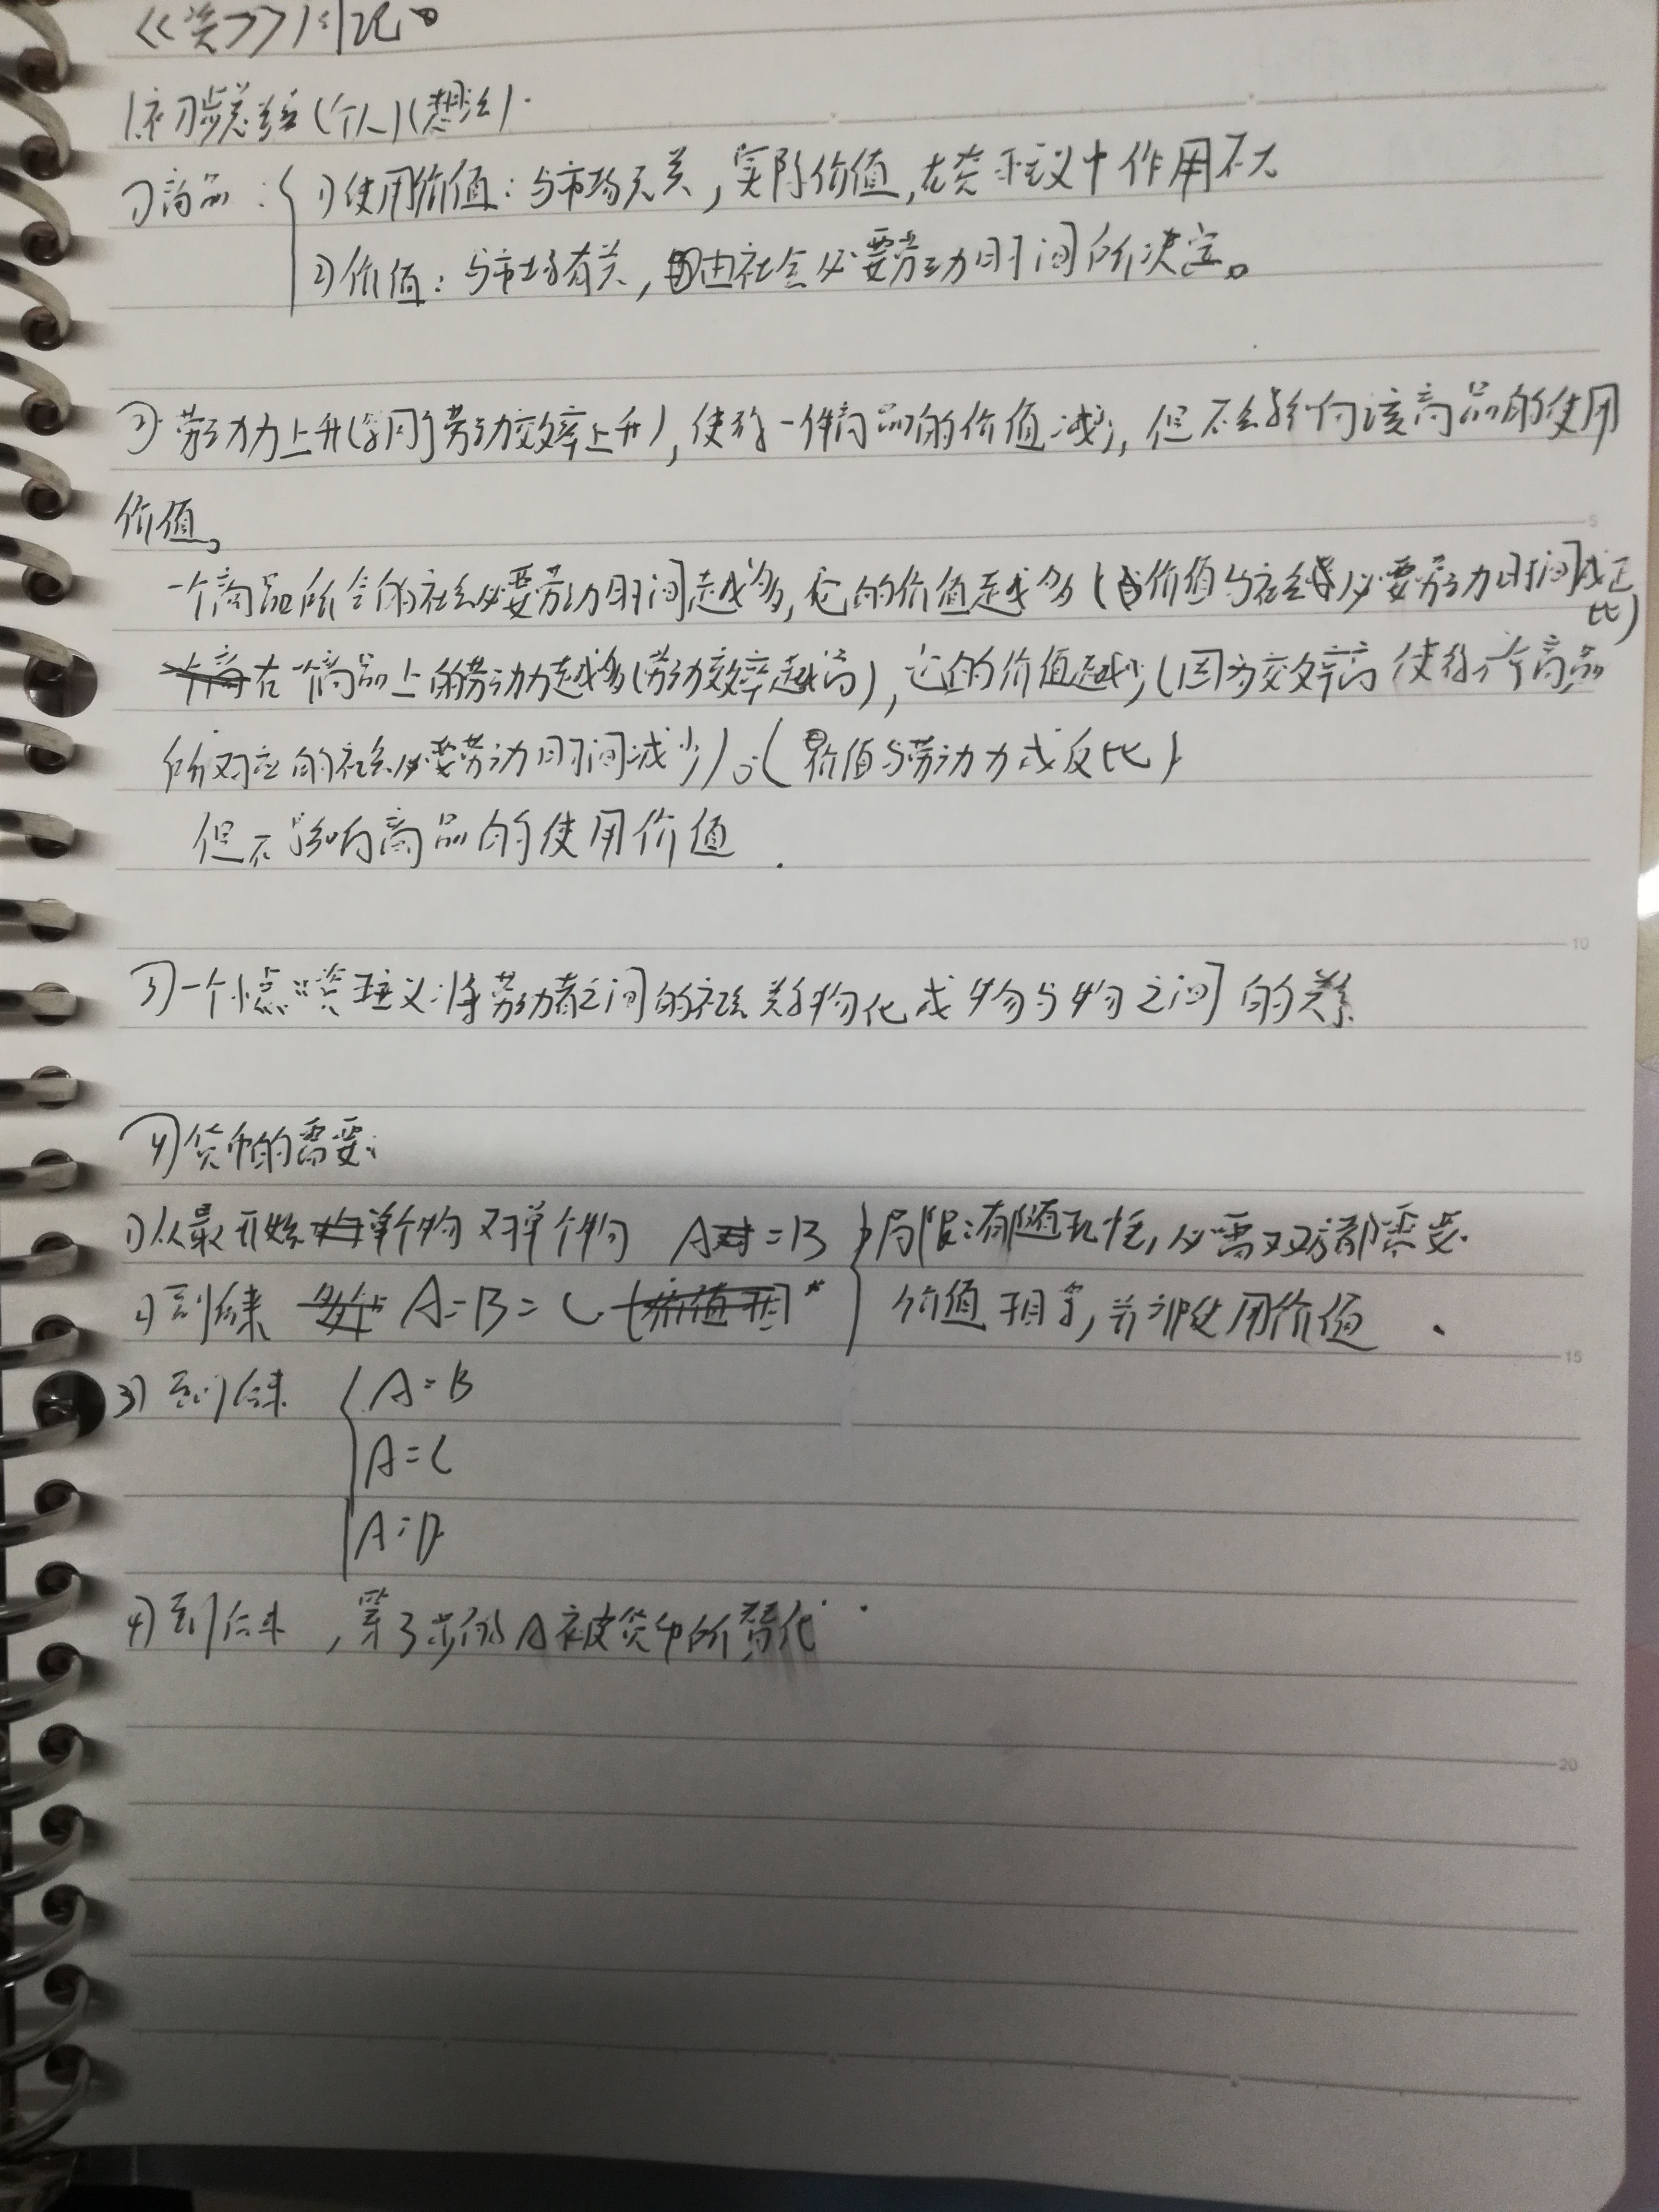 《资》》笔记。
1.初步总结(个人)(想法).
1)商品:{ 1)使用价值:与市场无关,实际价值,在资本主义中作用不大
2)价值:与市场有关,由社会必要劳动时间所决定。
2)劳动力上升(等同于劳动效率上升),使得一件商品的价值减少,但不会影响该商品的使用
价值。
一个商品所含的社会必要劳动时间越多,它的价值越多(价值与社会必要劳动时间成正
比)
在一个商品上的劳动力越多(劳动效率越高),它的价值越少(因为效率高使得一个商品
所对应的社会必要劳动时间减少)。(价值与劳动力成反比)
但不影响商品的使用价值.
3)一个小点:资本主义:将劳动者之间的社会关系物化成物与物之间的关系
4)货币的需要:
1)从最开始单个物对单个物 A=B }局限:有随机性,必需双方都需要.
2)到后来 A=B=C. 价值相等,并非使用价值.
3)到后来 { A=B
A=C
A=D
4)到后来,第3步的A被货币所替代.